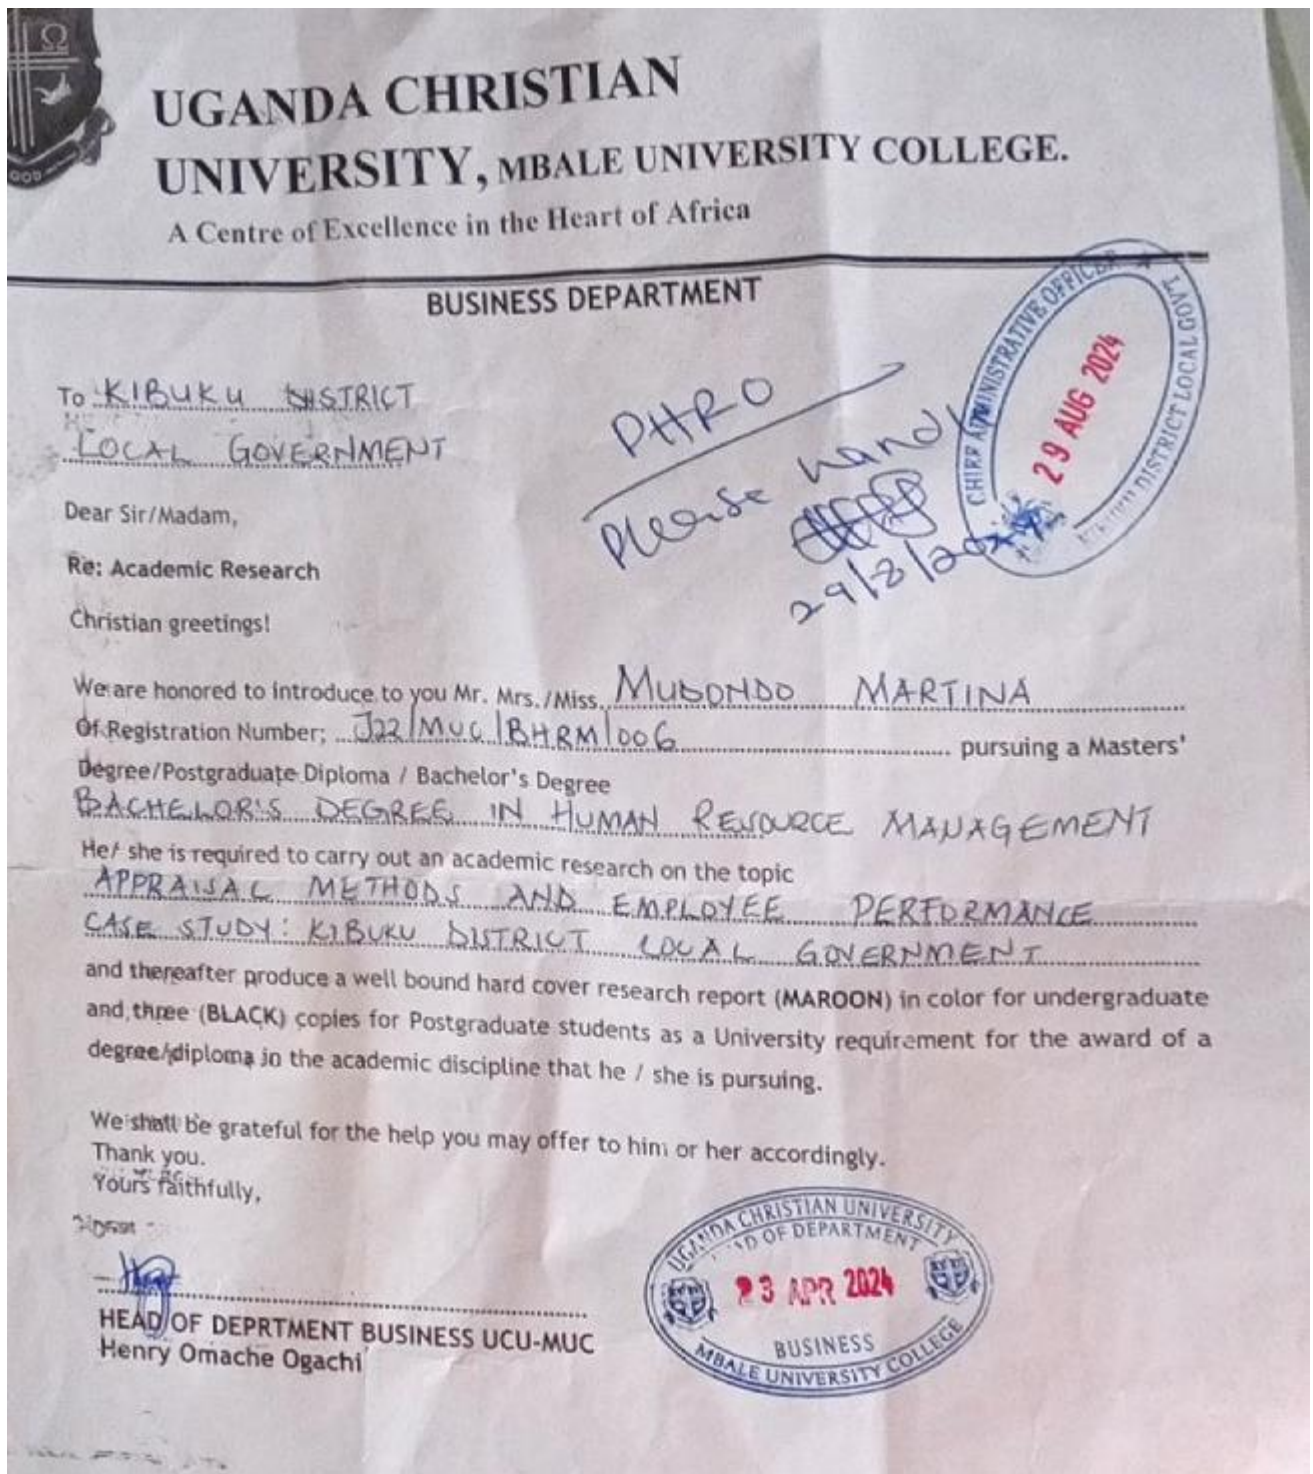 Ω
GOD
UGANDA CHRISTIAN
UNIVERSITY, MBALE UNIVERSITY COLLEGE.
A Centre of Excellence in the Heart of Africa
BUSINESS DEPARTMENT
CHIEF ADMINISTRATIVE OFFICER
29 AUG 2024
DISTRICT LOCAL GOVT
To KIBUKU DISTRICT
LOCAL GOVERNMENT
PHRO
Please handle
29/8/2024
Dear Sir/Madam,
Re: Academic Research
Christian greetings!
We are honored to introduce to you Mr. Mrs./Miss. MUDONDO MARTINA
Of Registration Number; J22/MUC/BHRM/006 pursuing a Masters'
Degree/Postgraduate Diploma / Bachelor's Degree
BACHELOR'S DEGREE IN HUMAN RESOURCE MANAGEMENT
He/ she is required to carry out an academic research on the topic
APPRAISAL METHODS AND EMPLOYEE PERFORMANCE
CASE STUDY: KIBUKU DISTRICT LOCAL GOVERNMENT
and thereafter produce a well bound hard cover research report (MAROON) in color for undergraduate
and three (BLACK) copies for Postgraduate students as a University requirement for the award of a
degree/diploma in the academic discipline that he / she is pursuing.
We shall be grateful for the help you may offer to him or her accordingly.
Thank you.
Yours faithfully,
HEAD OF DEPRTMENT BUSINESS UCU-MUC
Henry Omache Ogachi
UGANDA CHRISTIAN UNIVERSITY
OF DEPARTMENT
23 APR 2024
BUSINESS
MBALE UNIVERSITY COLLEGE